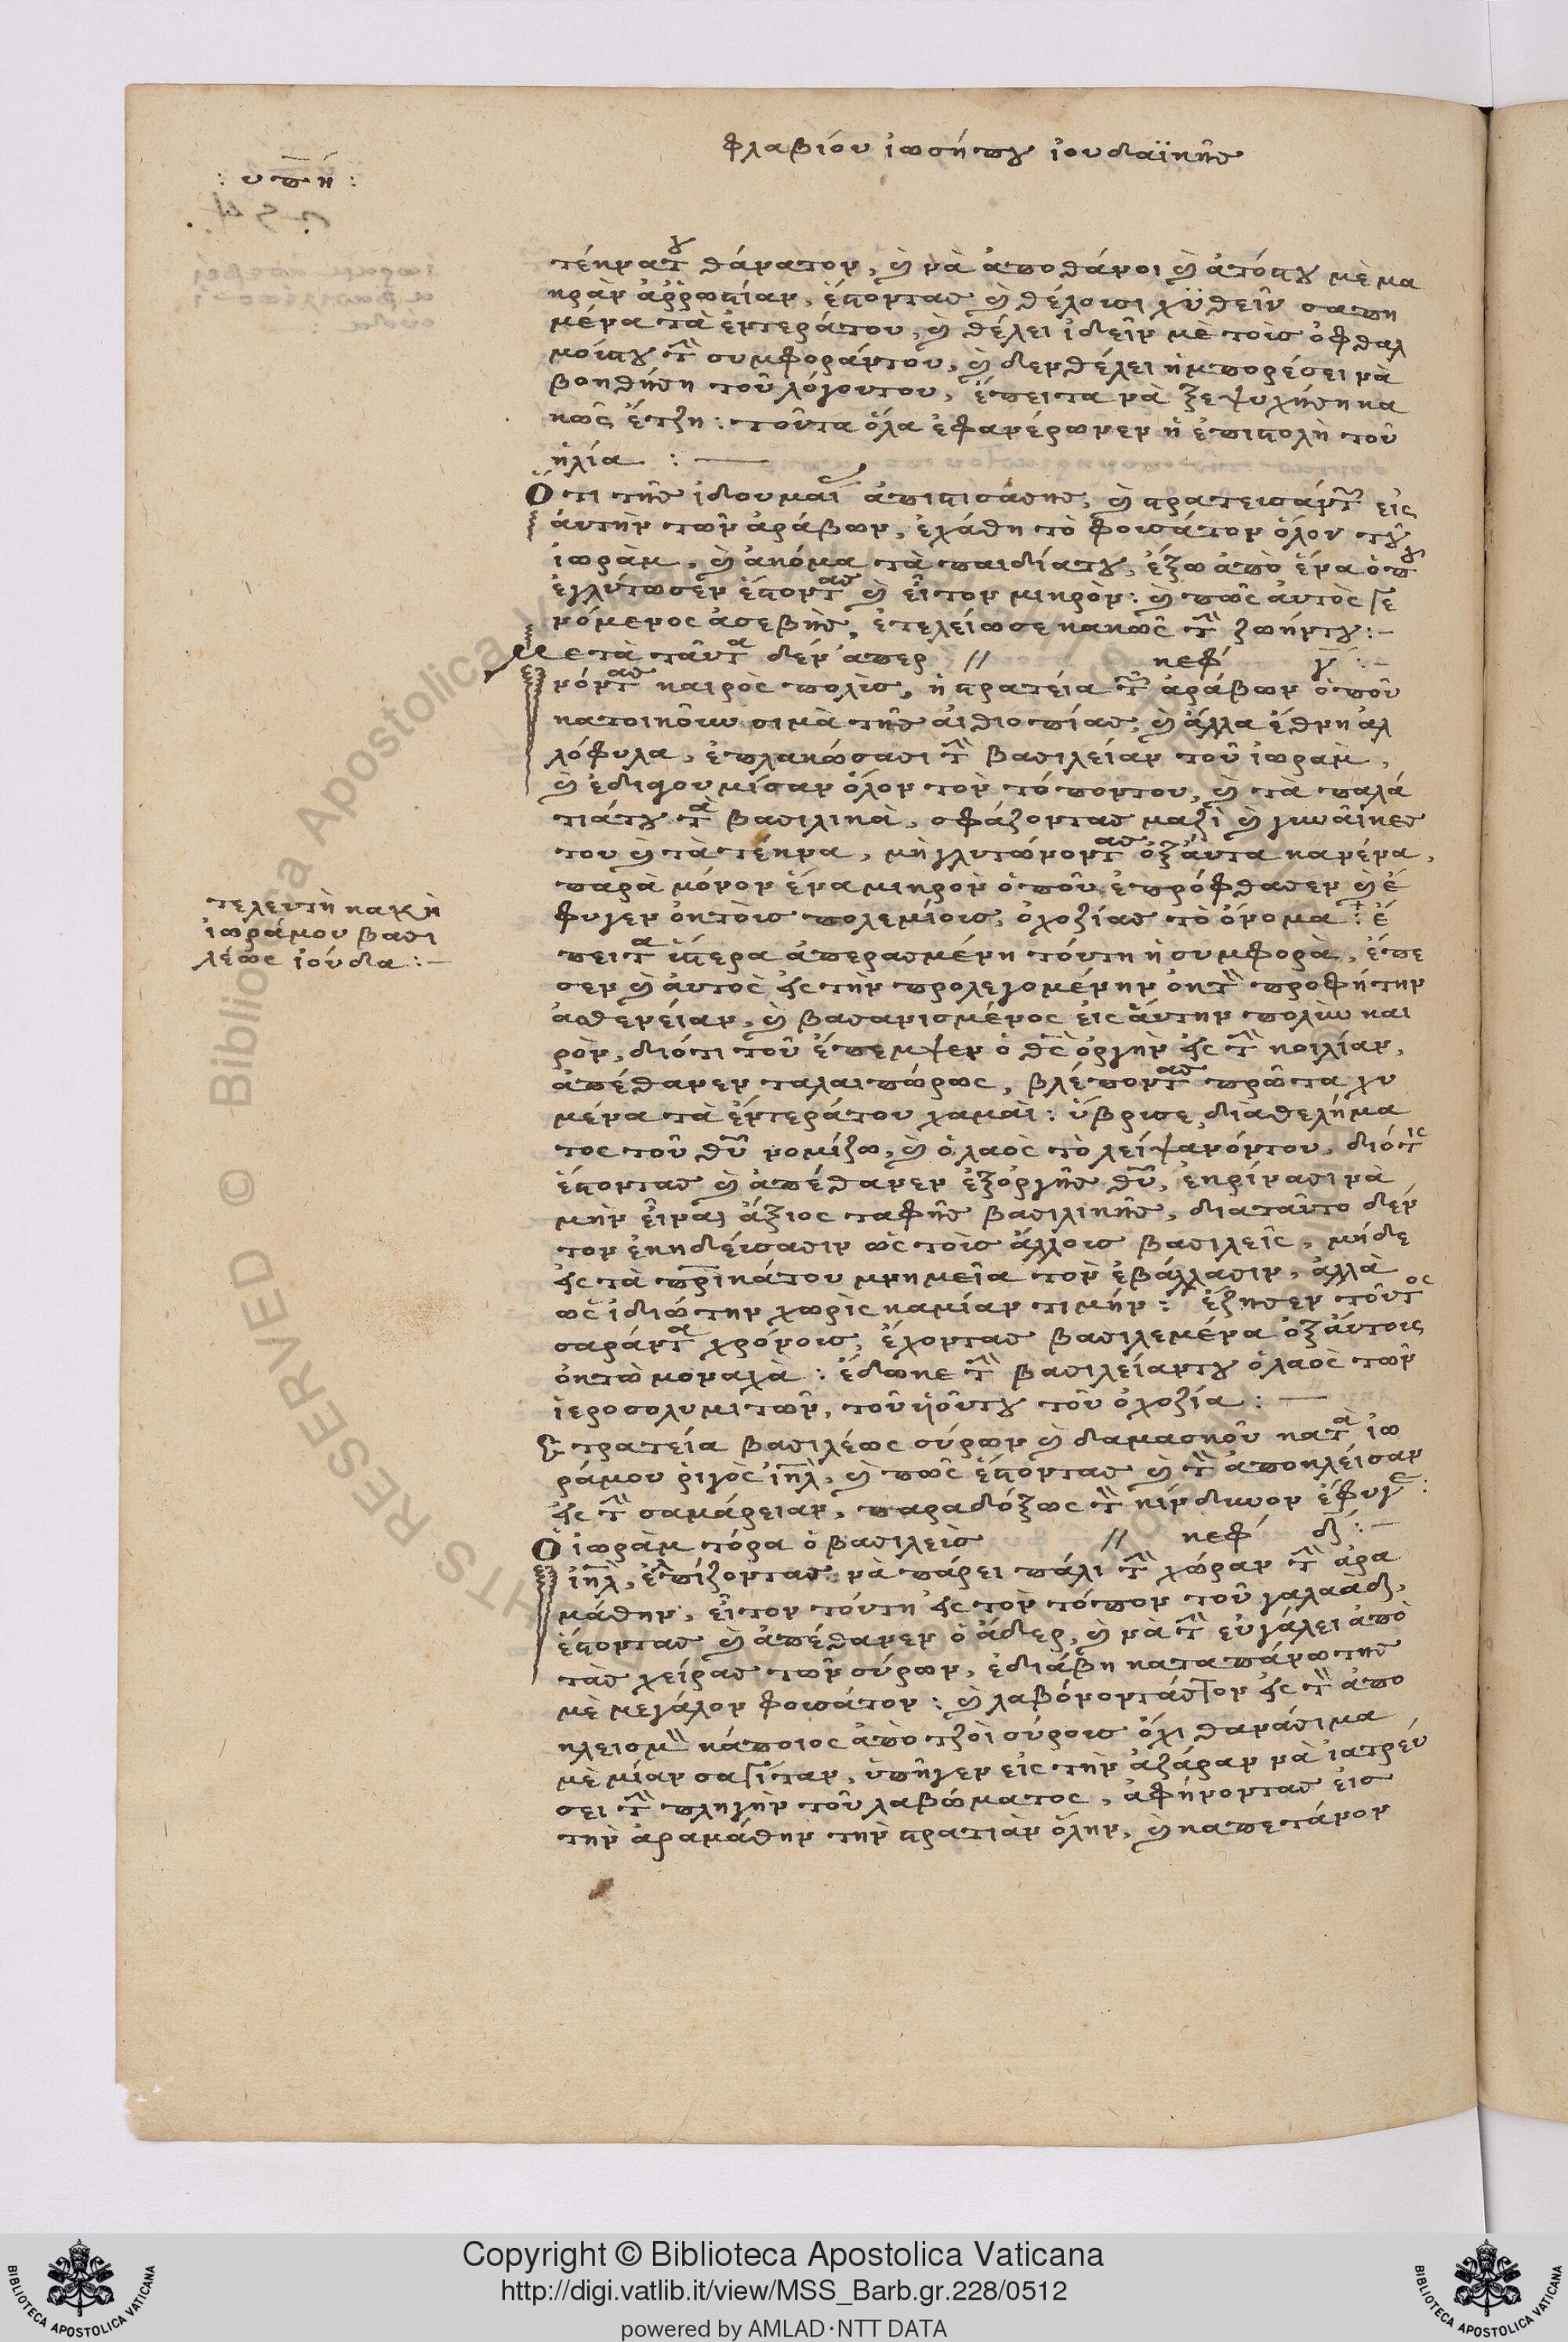 φλαβίου ἰωσήπου ἰουδαϊκῆς
: υπη :
τέκνατου θάνατον, καὶ νὰ ἀποθάνοι καὶ ἀτόστου μὲ μα
κρὰν ἀῤῥωστίαν, ἔστοντας καὶ θέλοισι χυθεῖν σαπη
μένα τὰ ἐντεράτου, καὶ θέλει ἰδεῖν μὲ τοὶς ὀφθαλ
μοίστου τὴν συμφοράντου, καὶ δεν θέλει ἠμπορέσει νὰ
βοηθήθη τοῦ λόγουτου, ἔπειτα νὰ ξεψυχήθη κα
κῶς ἔτζη : τοῦτα ὅλα ἐφανέρωνεν ἡ ἐπιστολὴ τοῦ
ἠλία :
Ὅτι τῆς ἰδουμαί ἀπιστισάσης, καὶ στρατεισάντων εἰς
ἀυτὴν τῶν ἀράβων, ἐχάθη τὸ φουσάτον ὅλον τοῦ
ἰωρὰμ, καὶ ἀκόμα τὰ παιδίατου, ἔξω ἀπὸ ἕνα ὁπου
ἐγλύτωσεν ἔστοντας καὶ εἶτον μικρὸν : καὶ πῶς ἀυτὸς γε
νόμενος ἀσεβὴς, ἐτελείωσε κακῶς τὴν ζωήντου :
Μετὰ ταῦτα δεν ἀπερ // κεφ γ :
νόντας καιρὸς πολὶς, ἡ στρατεία τῶν ἀράβων ὁποῦ
κατοικοῦν σιμὰ τῆς ἀιθιοπίας, καὶ ἄλλα ἔθνη ἀλ
λόφυλα, ἐπλακώσασι τὴν βασιλείαν τοῦ ἰωρὰμ,
καὶ ἐδιαγουμίσαν ὅλον τὸν τόποντου, καὶ τὰ παλά
τιάτου τὰ βασιλικὰ, σφάζοντας μαζὶ καὶ γυναῖκες
του καὶ τὰ τέκνα, μὴ γλυτώνοντας ὀξ ἀυτα κανένα,
παρὰ μόνον ἕνα μικρὸν ὁποῦ ἐπρόφθασεν καὶ ἔ
φυγεν ὀκ τοὶς πολεμίοις, ὀχοζίας τὸ ὄνομα : ἔ
πειτα ὕστερα ἀπερασμένη τούτη ἡ συμφορὰ, ἔπε
σεν καὶ ἀυτὸς εἰς τὴν προλεγομένην ὀκ τὸν προφήτην
ἀσθενείαν, καὶ βασανισμένος εἰς ἄυτην πολὺν και
ρὸν, διότι τοῦ ἔπεμψεν ὁ θς ὀργὴν εἰς τὴν κοιλίαν,
ἀπέθανεν ταλαιπώρως, βλέποντας πρῶτα χυ
μένα τὰ ἐντεράτου χαμαὶ : ὕβρισε διὰ θελήμα
τος τοῦ θυ νομίζω, καὶ ὁ λαὸς τὸ λείψανόντου, διότις
ἔστοντας καὶ ἀπέθανεν ἐξ ὀργῆς θυ, ἐκρίνασι νὰ
μὴν εἶναι ἄξιος ταφῆς βασιλικῆς, διαταῦτο δέν
τον ἐκηδείσασιν ὡς τοὶς ἄλλοις βασιλεῖς, μήδε
εἰς τὰ πρικάτου μνημεῖα τὸν ἐβάλλασιν, ἀλλὰ
ὡς ἰδιώτην χωρὶς καμίαν τιμὴν : ἔζησεν τοῦτος
σαράντα χρόνοις, ἔχοντας βασιλεμένα ὀξ ἀυτοις
ὀκτὼ μοναχὰ : ἔδωκε τὴν βασιλείαντου ὁ λαὸς τῶν
ἱεροσολυμιτῶν, τοῦ ἡοῦτου τοῦ ὀχοζία :
Στρατεία βασιλέως σύρων καὶ δαμασκοῦ κατὰ ἰω
ράμου ῥιγὸς ἰηλ, καὶ πῶς ἔστοντας καὶ τὸν ἀποκλείσαν
εἰς τὴν σαμάρειαν, παραδόξως τὸν κίνδυνον ἔφυγε :
Ὁ ἰωρὰμ τόρα ὁ βασιλεὶς // κεφ δ :
ἰηλ, ἐλπίζοντας νὰ πάρει πάλι τὴν χώραν τὴν ἀρα
μάθην, εἶτον τούτη εἰς τὸν τόπον τοῦ γαλαὰδ,
ἔστοντας καὶ ἀπέθανεν ὁ ἄδερ, καὶ νὰ τὴν εὐγάλει ἀπὸ
τὰς χείρας τῶν σύρων, ἐδιάβη καταπάνωτης
μὲ μεγάλον φουσάτον : καὶ λαβόνοντάστον εἰς τὸν ἀπο
κλεισμὸν κάποιος ἀπὸ τζοὶ σύροις ὄχι θανάσιμα
μὲ μίαν σαγίταν, ὑπῆγεν εἰς τὴν ἀζάραν νὰ ἰατρεύ
σει τὴν πληγὴν τοῦ λαβώματος, ἀφήνοντας εἰς
τὴν ἀραμάθην τὴν στρατιὰν ὅλην, καὶ καπετάνον
τελευτὴ κακὴ
ἰωράμου βασι
λέως ἰούδα :
Copyright © Biblioteca Apostolica Vaticana
http://digi.vatlib.it/view/MSS_Barb.gr.228/0512
powered by AMLAD·NTT DATA